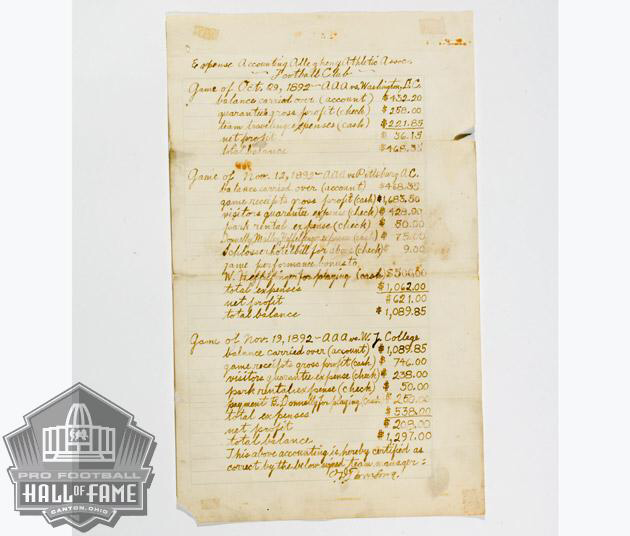 Expense Accounting Allegheny Athletic Assoc.
Football Club
Game of Oct. 29, 1892 - AAA vs. Washington, D.C.
balance carried over (account) $432.20
guarantee gross profit (check) $258.00
team traveling expenses (cash) $221.85
net profit $36.15
total balance $468.35
Game of Nov. 12, 1892 - AAA vs Pittsburg A.C.
balance carried over (account) $468.35
game receipts gross profit (cash) $1,683.50
visitors guarantee expense (check) $428.00
park rental expense (check) $50.00
Donnelly, Malley, Heffelfinger expenses (cash) $75.00
Schlosser hotel bill for above (check) $9.00
game performance bonus to
W. Heffelfinger for playing (cash) $500.00
total expenses $1,062.00
net profit $621.00
total balance $1,089.85
Game of Nov. 19, 1892 - AAA vs. W. J. College
balance carried over (account) $1,089.85
game receipts gross profit (cash) $746.00
visitors guarantee expense (check) $238.00
park rental expense (check) $50.00
payment B. Donnelly for playing (cash) $250.00
total expenses $538.00
net profit $208.00
total balance $1,297.00
This above accounting is hereby certified as
correct by the below signed team manager:
PRO FOOTBALL
HALL OF FAME
CANTON, OHIO